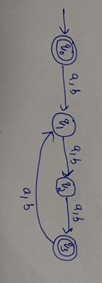 q₀
a,b
q₁
a,b
q₂
a,b
q₃
a,b